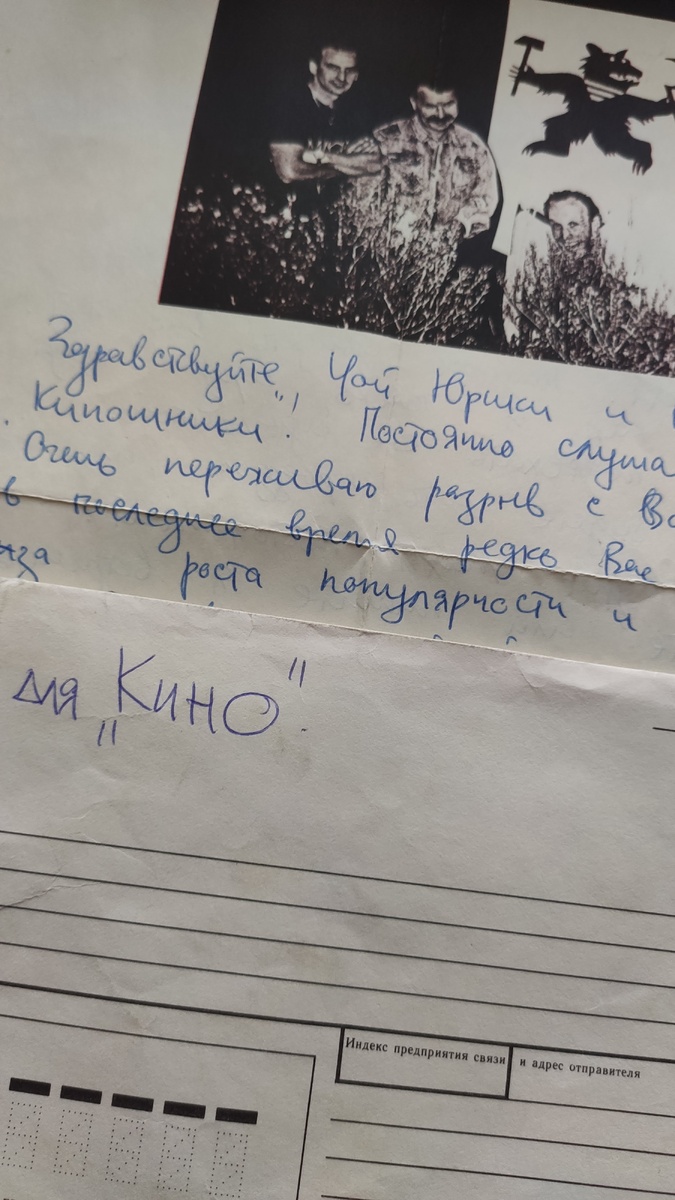 Здравствуйте, Чой Юрики и
"Кипошники". Постоянно слуша
Очень переживаю разрыв с Ва
в последнее время редко Вас
роста популярности и
для "КИНО".
Индекс предприятия связи и адрес отправителя